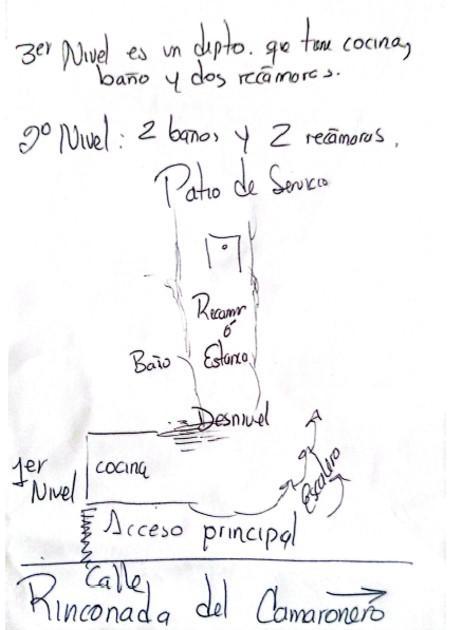 3er Nivel es un depto. que tiene cocina,
baño y dos recámaras.
2º Nivel: 2 baños y 2 recámaras.
Patio de Servicio
Recamr
ó
Estancia
Baño
Desnivel
1er
Nivel
cocina
Escalera
Acceso principal
Calle
Rinconada del Camaronero